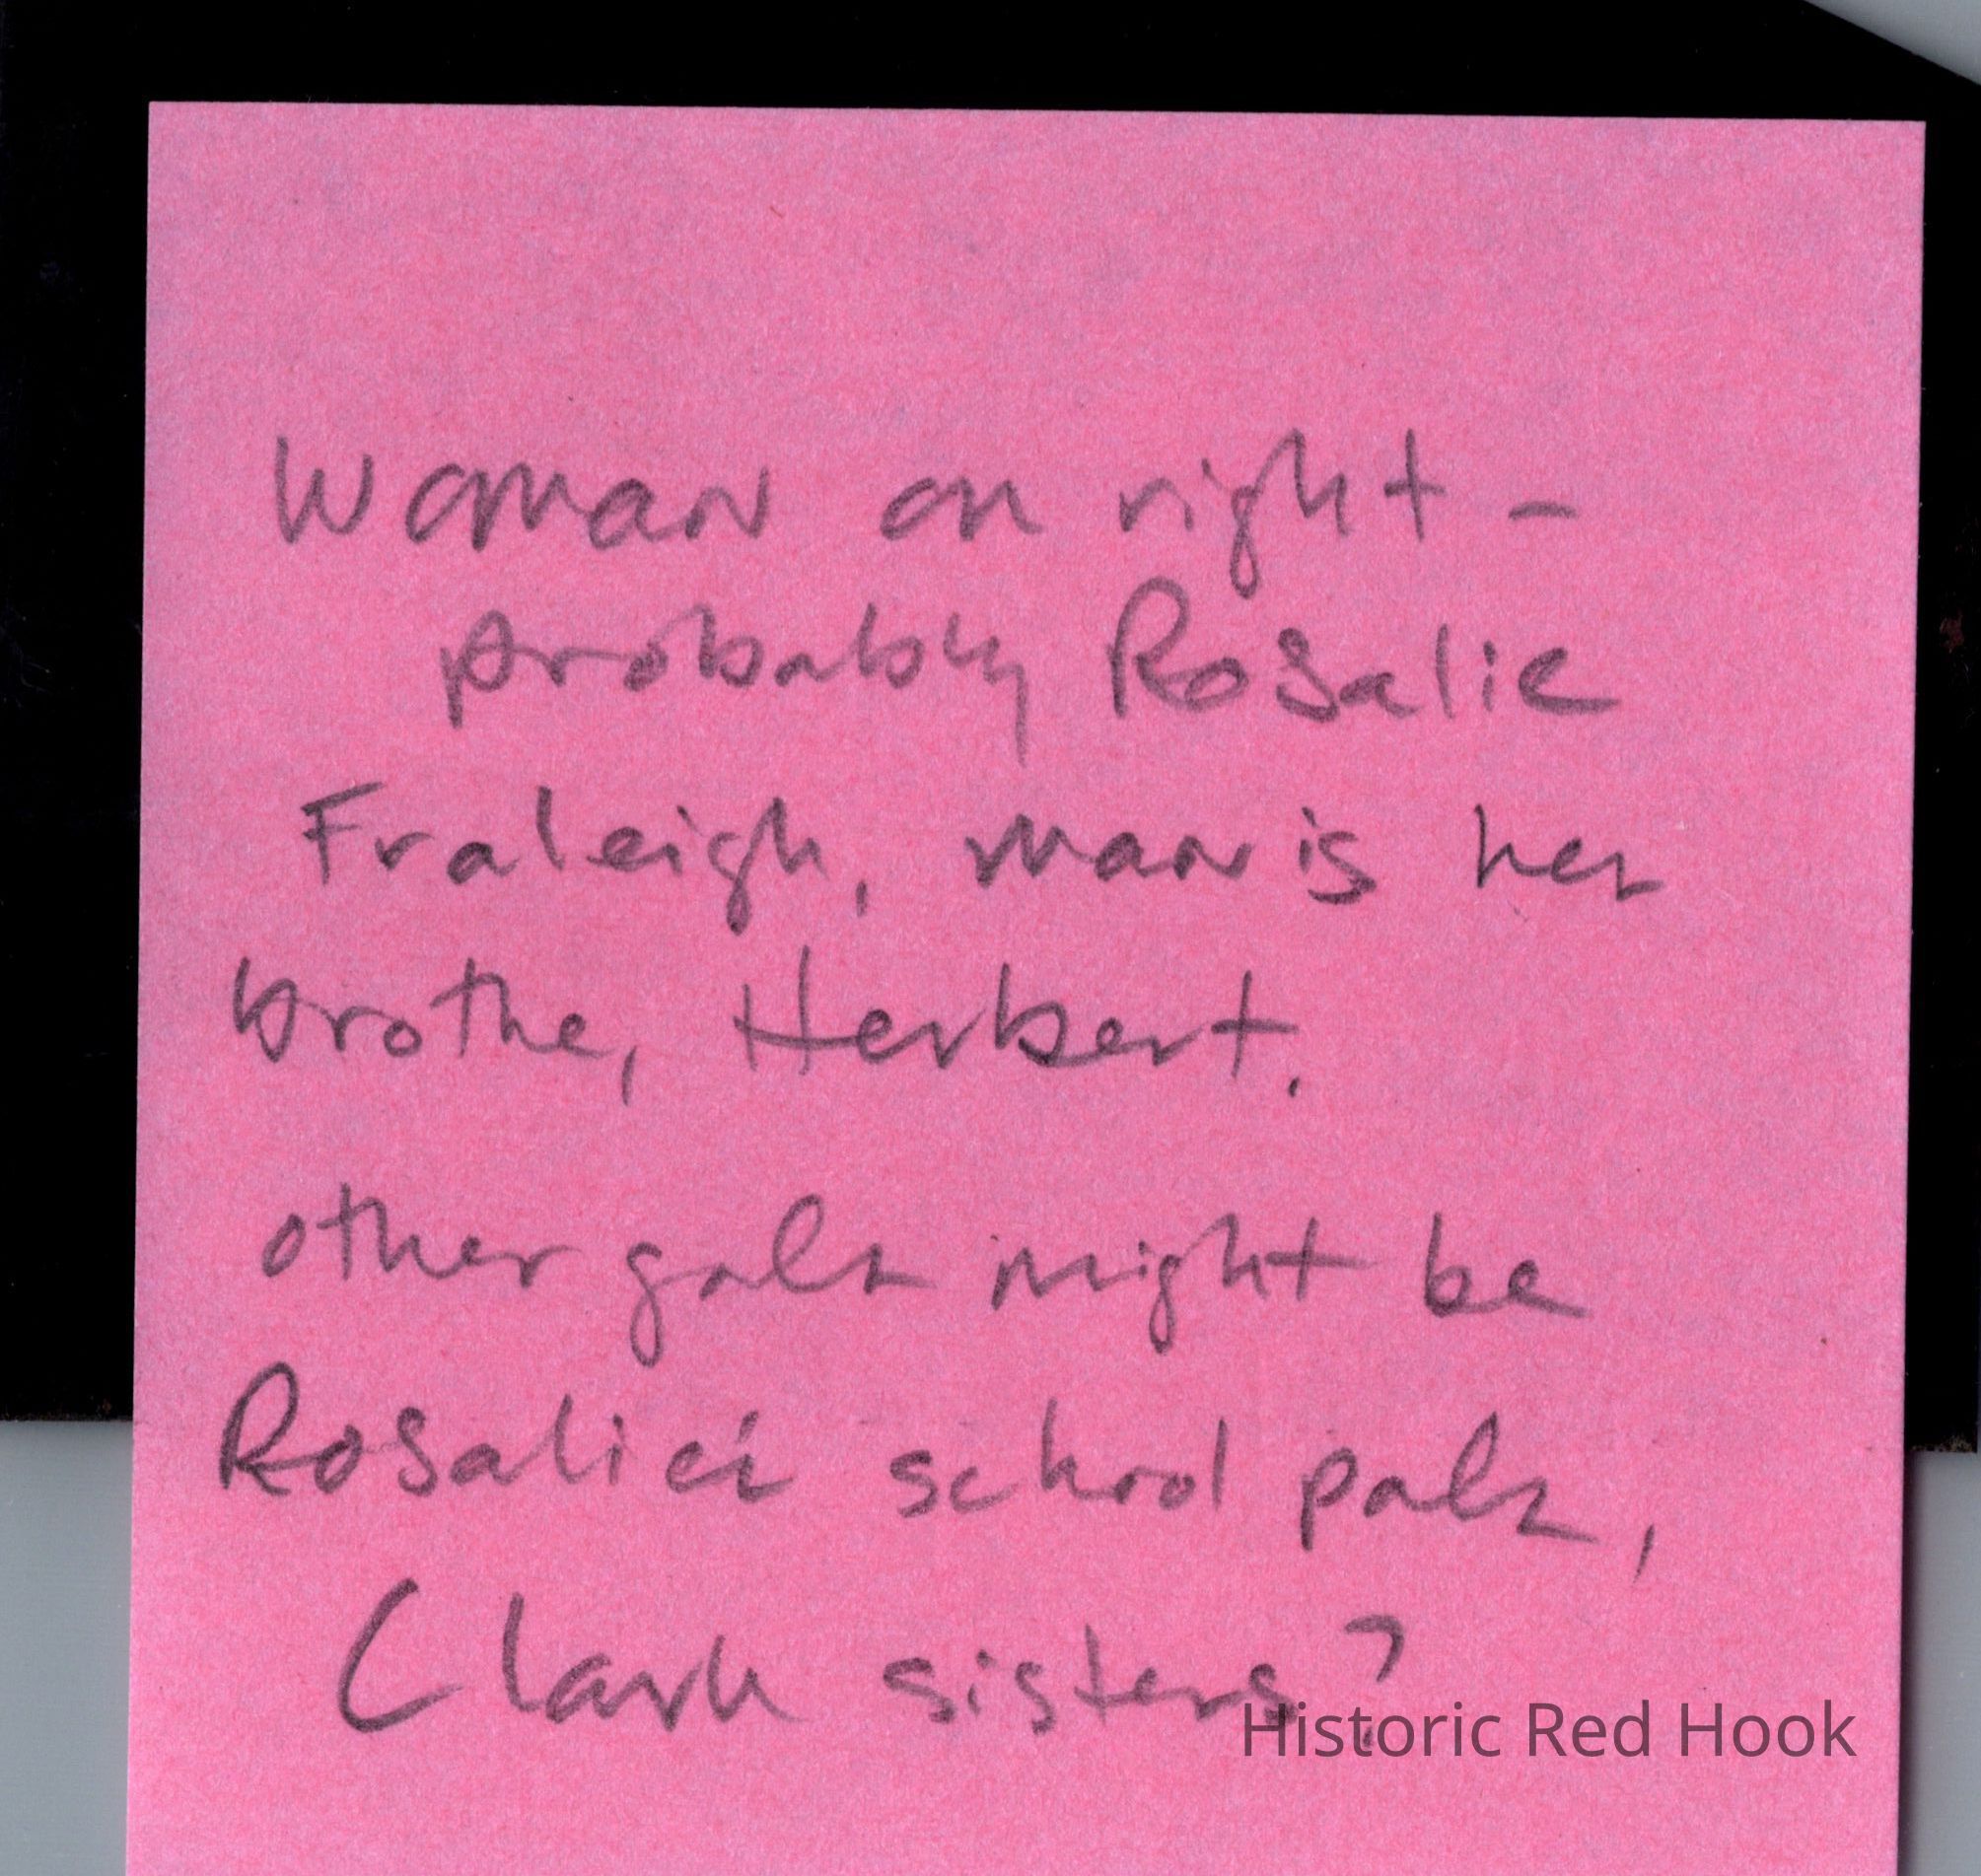 Woman on right –
probably Rosalie
Fraleigh, man is her
brothe, Herbert.
other gals might be
Rosalie's school pals,
Clark sisters?
Historic Red Hook